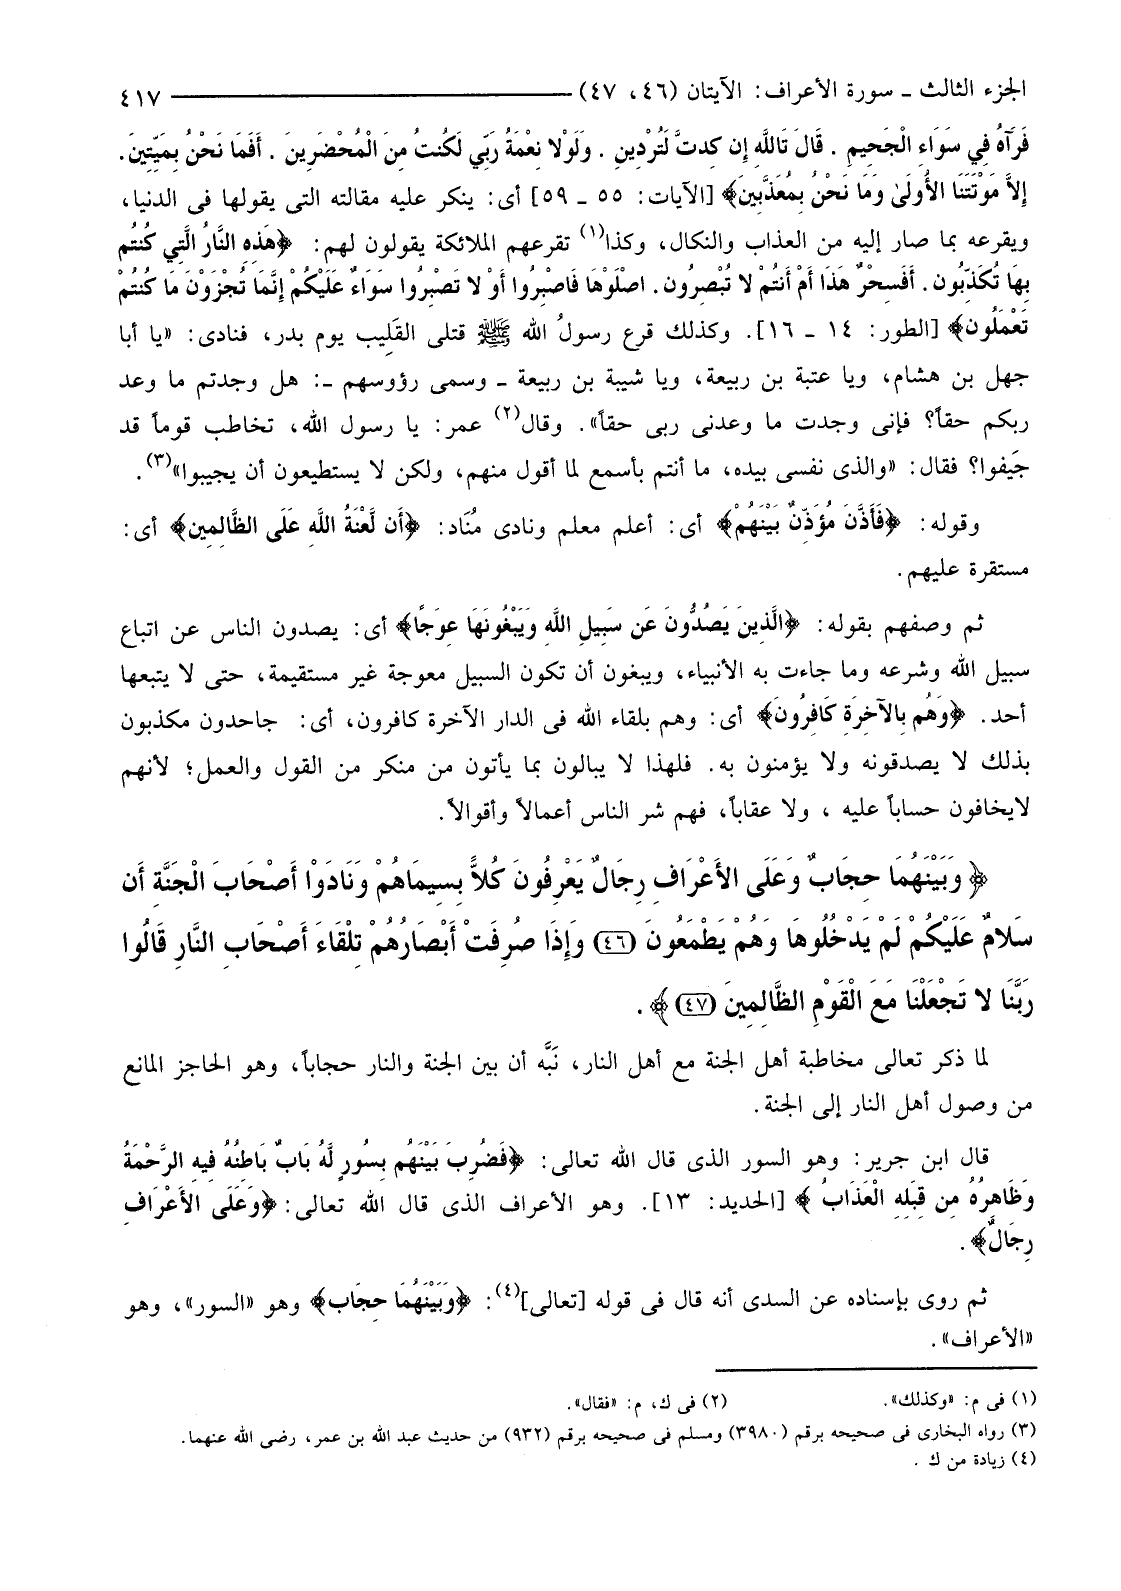 الجزء الثالث ـ سورة الأعراف: الآيتان (٤٦، ٤٧) ــــــــــــــــــــــــ ٤١٧
فَرَآهُ فِي سَوَاءِ الْجَحِيمِ . قَالَ تَاللَّهِ إِن كِدتَّ لَتُرْدِينِ . وَلَوْلا نِعْمَةُ رَبِّي لَكُنتُ مِنَ الْمُحْضَرِينَ . أَفَمَا نَحْنُ بِمَيِّتِينَ.
إِلاَّ مَوْتَتَنَا الأُولَىٰ وَمَا نَحْنُ بِمُعَذَّبِينَ﴾ [الآيات: ٥٥ ـ ٥٩] أى: ينكر عليه مقالته التى يقولها فى الدنيا،
ويقرعه بما صار إليه من العذاب والنكال، وكذا(١) تقرعهم الملائكة يقولون لهم: ﴿هَذِهِ النَّارُ الَّتِي كُنتُم
بِهَا تُكَذِّبُون . أَفَسِحْرٌ هَذَا أَمْ أَنتُمْ لا تُبْصِرُون . اصْلَوْهَا فَاصْبِرُوا أَوْ لا تَصْبِرُوا سَوَاءٌ عَلَيْكُمْ إِنَّمَا تُجْزَوْنَ مَا كُنتُمْ
تَعْمَلُون﴾ [الطور: ١٤ ـ ١٦]. وكذلك قرع رسولُ الله ﷺ قتلى القَلِيب يوم بدر، فنادى: «يا أبا
جهل بن هشام، ويا عتبة بن ربيعة، ويا شيبة بن ربيعة ـ وسمى رؤوسهم ـ: هل وجدتم ما وعد
ربكم حقاً؟ فإنى وجدت ما وعدنى ربى حقاً». وقال(٢) عمر: يا رسول الله، تخاطب قوماً قد
جَيفوا؟ فقال: «والذى نفسى بيده، ما أنتم بأسمع لما أقول منهم، ولكن لا يستطيعون أن يجيبوا»(٣).
وقوله: ﴿فَأَذَّنَ مُؤَذِّنٌ بَيْنَهُمْ﴾ أى: أعلم معلم ونادى مُنَاد: ﴿أَن لَّعْنَةُ اللَّهِ عَلَى الظَّالِمِين﴾ أى:
مستقرة عليهم.
ثم وصفهم بقوله: ﴿الَّذِينَ يَصُدُّونَ عَن سَبِيلِ اللَّهِ وَيَبْغُونَهَا عِوَجًا﴾ أى: يصدون الناس عن اتباع
سبيل الله وشرعه وما جاءت به الأنبياء، ويبغون أن تكون السبيل معوجة غير مستقيمة، حتى لا يتبعها
أحد. ﴿وَهُم بِالآخِرَةِ كَافِرُونَ﴾ أى: وهم بلقاء الله فى الدار الآخرة كافرون، أى: جاحدون مكذبون
بذلك لا يصدقونه ولا يؤمنون به. فلهذا لا يبالون بما يأتون من منكر من القول والعمل؛ لأنهم
لايخافون حساباً عليه ، ولا عقاباً، فهم شر الناس أعمالاً وأقوالاً.
﴿ وَبَيْنَهُمَا حِجَابٌ وَعَلَى الأَعْرَافِ رِجَالٌ يَعْرِفُونَ كُلاًّ بِسِيمَاهُمْ وَنَادَوْا أَصْحَابَ الْجَنَّةِ أَن
سَلامٌ عَلَيْكُمْ لَمْ يَدْخُلُوهَا وَهُمْ يَطْمَعُونَ (٤٦) وَإِذَا صُرِفَتْ أَبْصَارُهُمْ تِلْقَاءَ أَصْحَابِ النَّارِ قَالُوا
رَبَّنَا لا تَجْعَلْنَا مَعَ الْقَوْمِ الظَّالِمِينَ (٤٧) ﴾ .
لما ذكر تعالى مخاطبة أهل الجنة مع أهل النار، نَبَّه أن بين الجنة والنار حجاباً، وهو الحاجز المانع
من وصول أهل النار إلى الجنة.
قال ابن جرير: وهو السور الذى قال الله تعالى: ﴿فَضُرِبَ بَيْنَهُم بِسُورٍ لَّهُ بَابٌ بَاطِنُهُ فِيهِ الرَّحْمَةُ
وَظَاهِرُهُ مِن قِبَلِهِ الْعَذَابُ ﴾ [الحديد: ١٣]. وهو الأعراف الذى قال الله تعالى: ﴿وَعَلَى الأَعْرَافِ
رِجَالٌ﴾ .
ثم روى بإسناده عن السدى أنه قال فى قوله [تعالى](٤): ﴿وَبَيْنَهُمَا حِجَاب﴾ وهو «السور»، وهو
«الأعراف» .
(١) فى م: «وكذلك». (٢) فى ك، م: «فقال».
(٣) رواه البخارى فى صحيحه برقم (٣٩٨٠) ومسلم فى صحيحه برقم (٩٣٢) من حديث عبد الله بن عمر، رضى الله عنهما.
(٤) زيادة من ك .